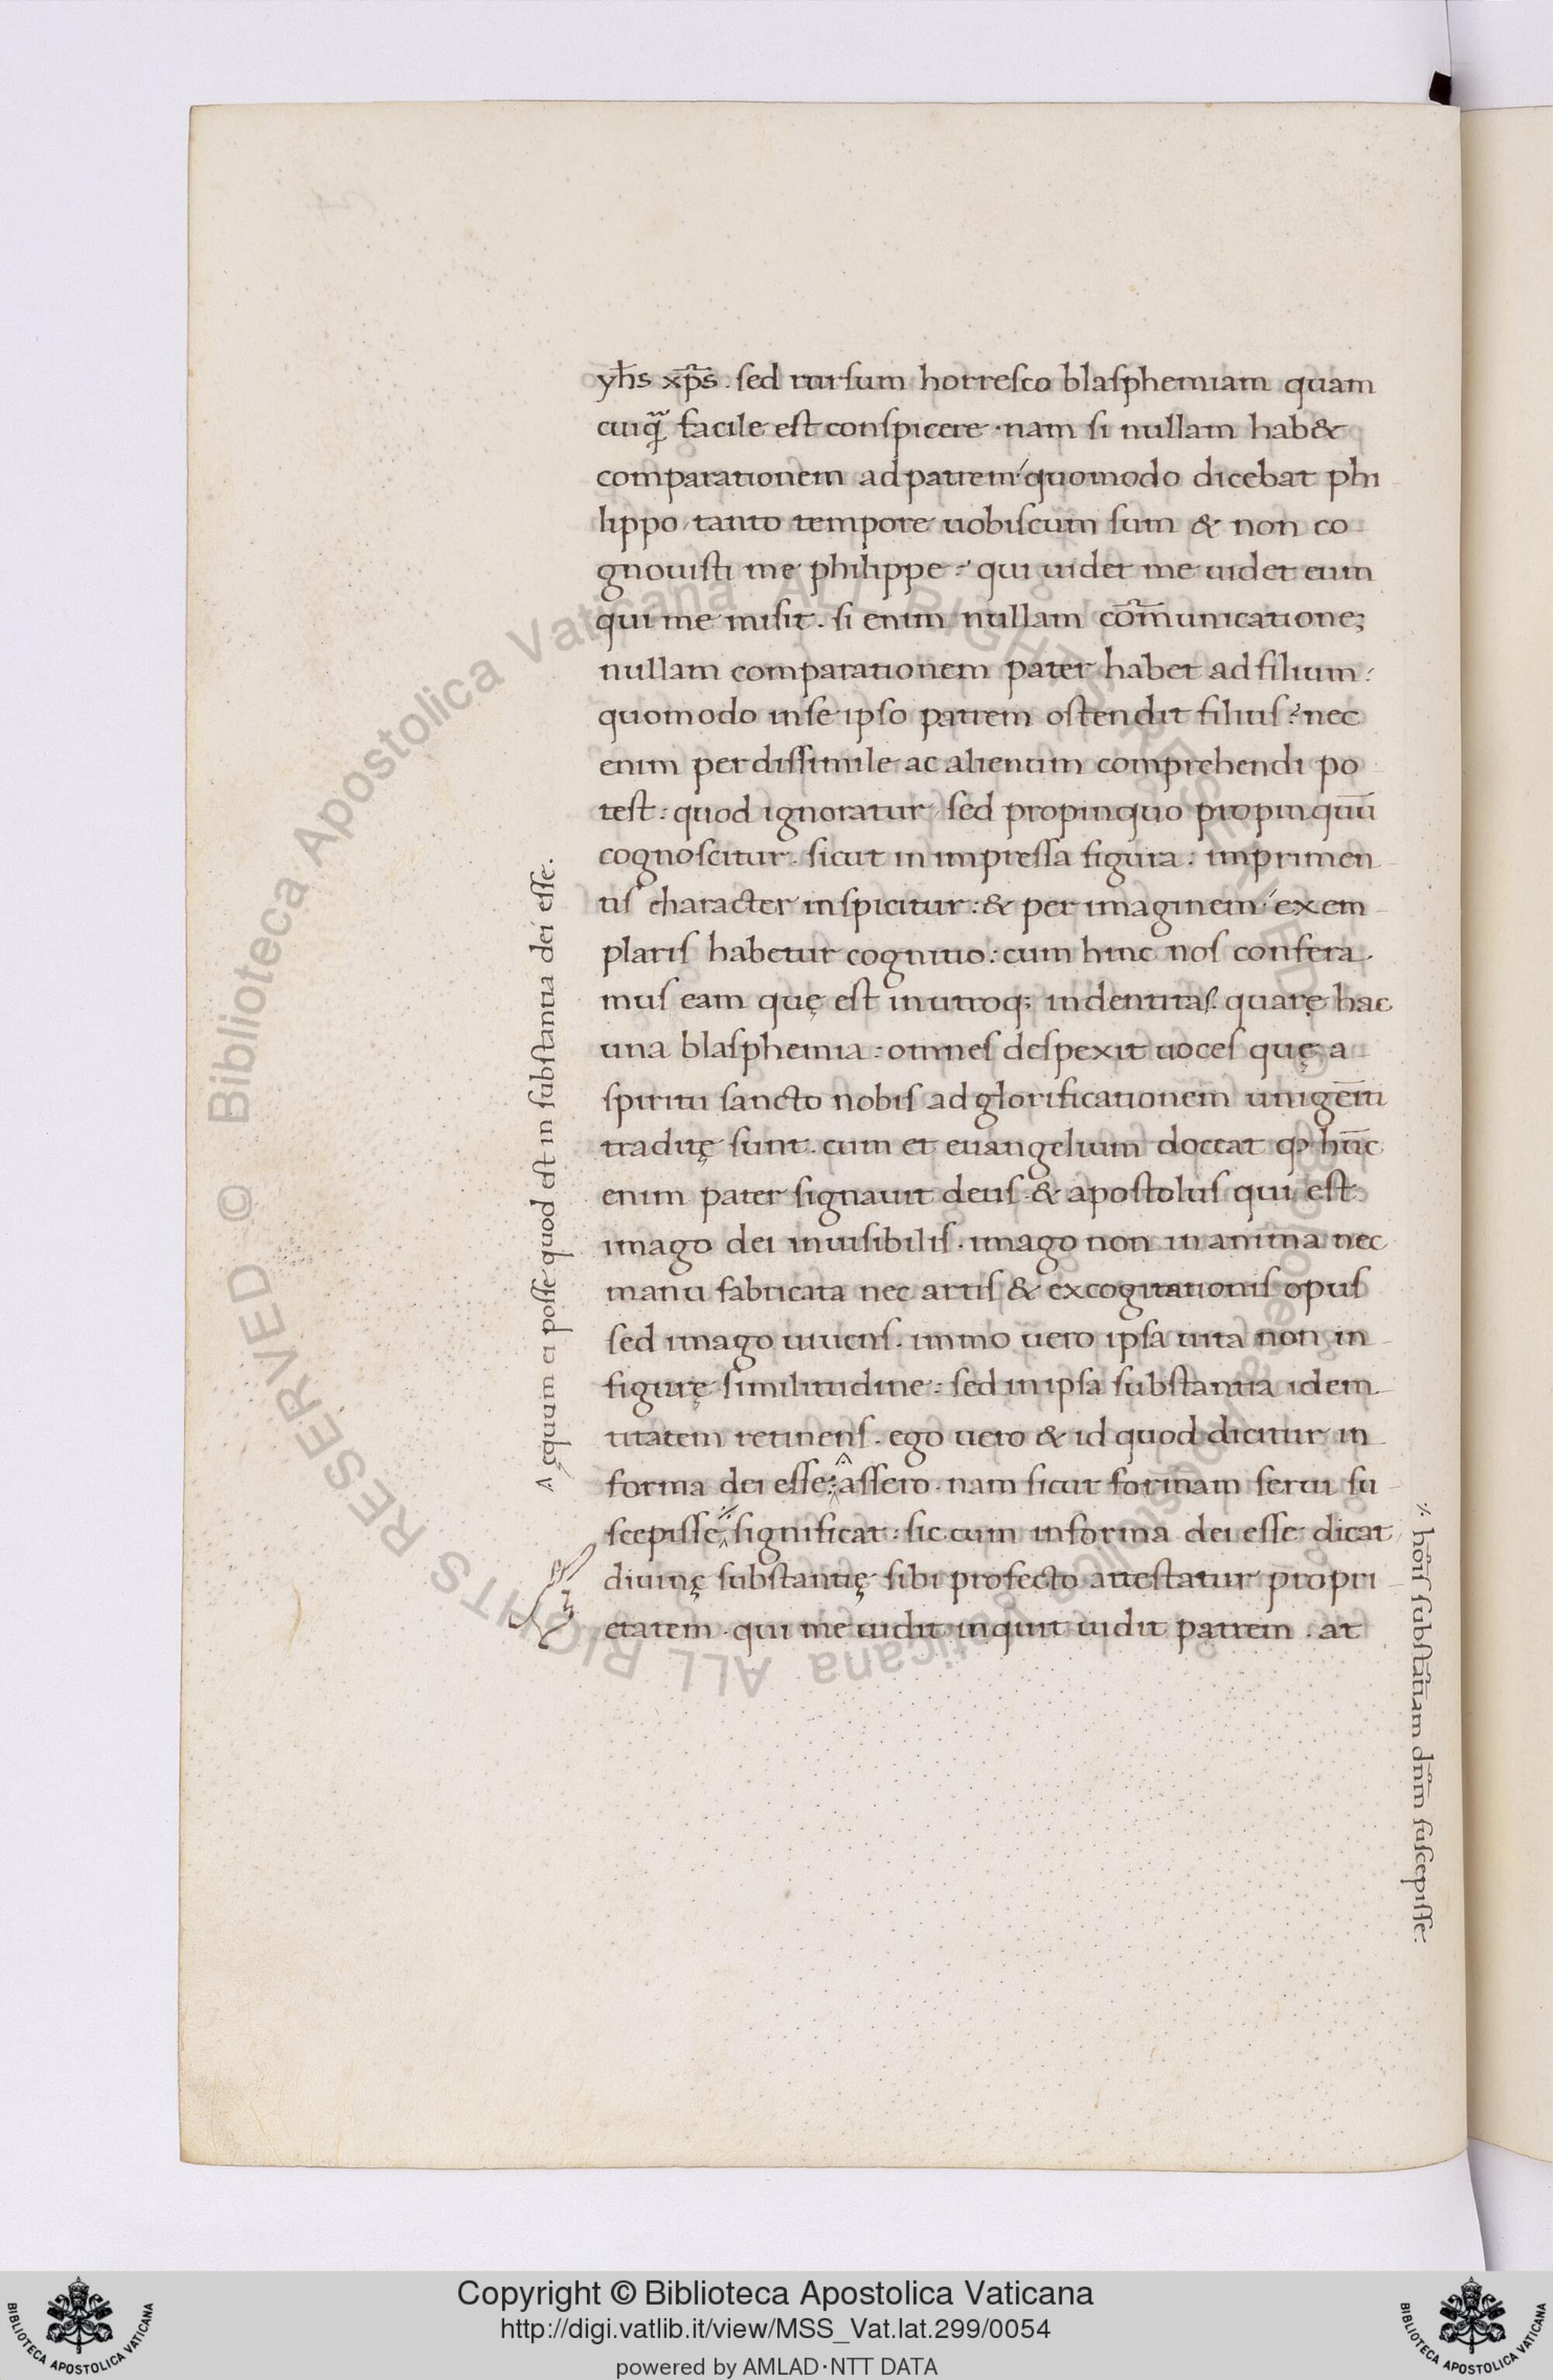 yħs xp̄s . sed rursum horresco blasphemiam quam
cuiq̃ facile est conspicere · nam si nullam hab&
comparationem ad patrem: quomodo dicebat phi
lippo tanto tempore uobiscum sum & non co
gnouisti me philippe : qui uidet me uidet eum
qui me misit . si enim nullam com̄unicatione;
nullam comparationem pater habet ad filium :
quomodo in se ipso patrem ostendit filius ? nec
enim per dissimile ac alienum comprehendi po
test : quod ignoratur , sed propinquo propinquū
cognoscitur . sicut in impressa figura : imprimen
tis character inspicitur : & per imaginem exem
plaris habetur cognitio : cum hinc nos confera
mus eam quę est in utroq; indentitas . quarę hac
una blasphemia : omnes despexit uoces quę a
spiritu sancto nobis ad glorificationem unigēiti
traditę sunt . cum et euangelium doceat ꝙ hūc
enim pater signauit deus · & apostolus qui est
imago dei inuisibilis . imago non inanima nec
manu fabricata nec artis & excogitationis opus
sed imago uiuens . immo uero ipsa uita non in
figurę similitudine : sed in ipsa substantia idem
titatem retinens . ego uero & id quod dicitur in
forma dei esse : assero . nam sicut formam serui su
scepisse significat : sic cum in forma dei esse dicat
diuinę substantię sibi profecto attestatur propri
etatem . qui me uidit inquit uidit patrem . at
ęquum ei posse quod est in substantia dei esse .
hoīs substātiam dn̄m suscepisse .
© Biblioteca Apostolica Vaticana ALL RIGHTS RESERVED
© Biblioteca Apostolica Vaticana ALL RIGHTS RESERVED
BIBLIOTECA APOSTOLICA VATICANA
Copyright © Biblioteca Apostolica Vaticana
http://digi.vatlib.it/view/MSS_Vat.lat.299/0054
powered by AMLAD·NTT DATA
BIBLIOTECA APOSTOLICA VATICANA